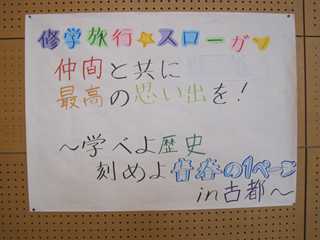 修学旅行☆スローガン
仲間と共に
最高の思い出を！
～学べよ歴史
刻めよ青春の1ページ
in古都～